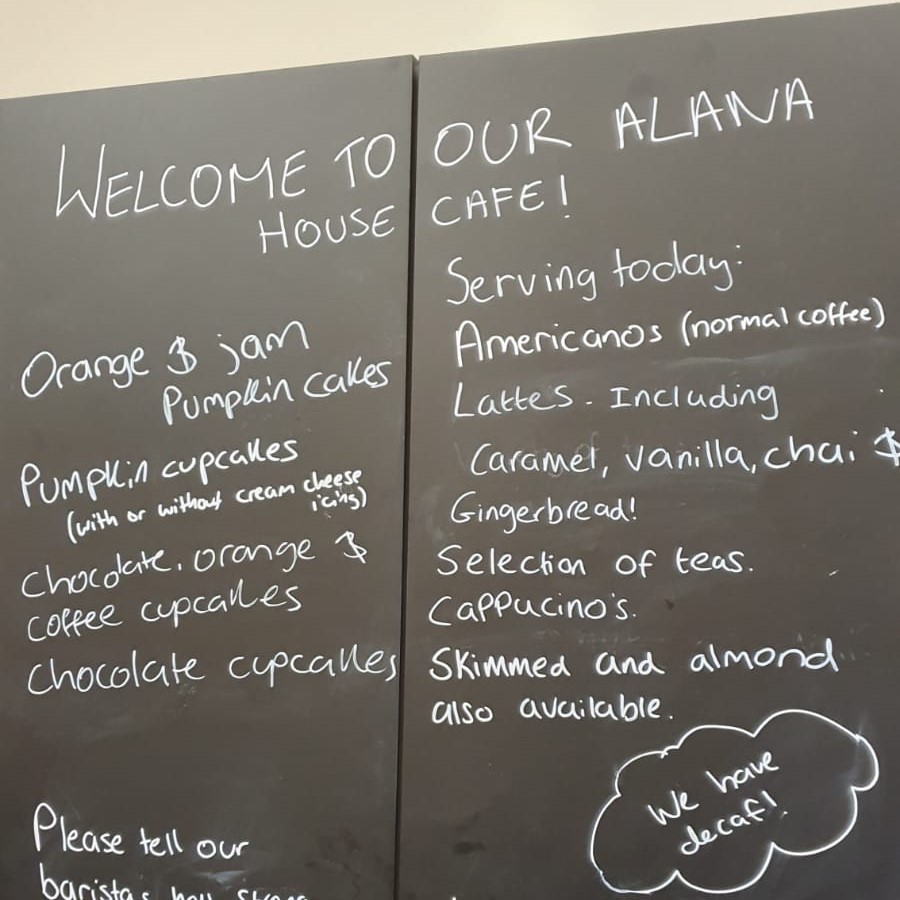 WELCOME TO OUR ALANA
HOUSE CAFE!
Orange & jam
Pumpkin cakes
Pumpkin cupcakes
(with or without cream cheese
icing)
Chocolate, orange &
coffee cupcakes
Chocolate cupcakes
Please tell our
baristas how strong
Serving today:
Americanos (normal coffee)
Lattes - Including
Caramel, vanilla, chai &
Gingerbread!
Selection of teas.
Cappucino's.
Skimmed and almond
also available.
We have
decaf!